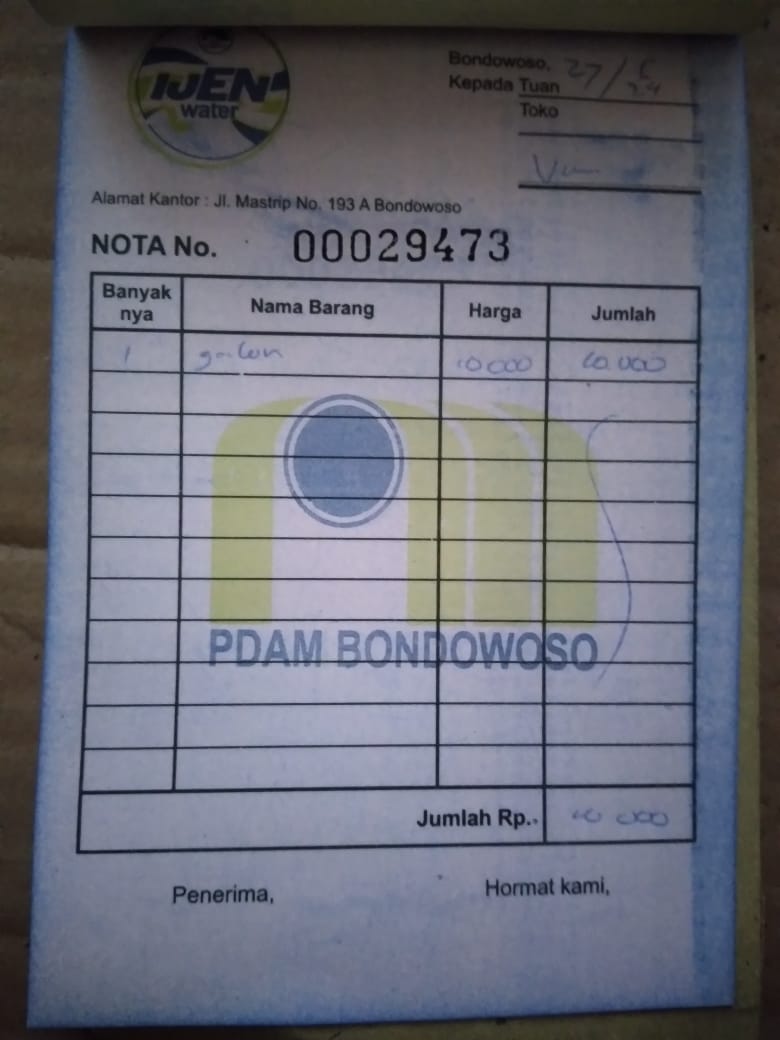 IJEN
water
Bondowoso, 27/
Kepada Tuan
Toko
Alamat Kantor : Jl. Mastrip No. 193 A Bondowoso
NOTA No. 00029473
Banyak nya Nama Barang Harga Jumlah
1 galon 10000 10.000
PDAM BONDOWOSO
Jumlah Rp.. 10 000
Penerima, Hormat kami,